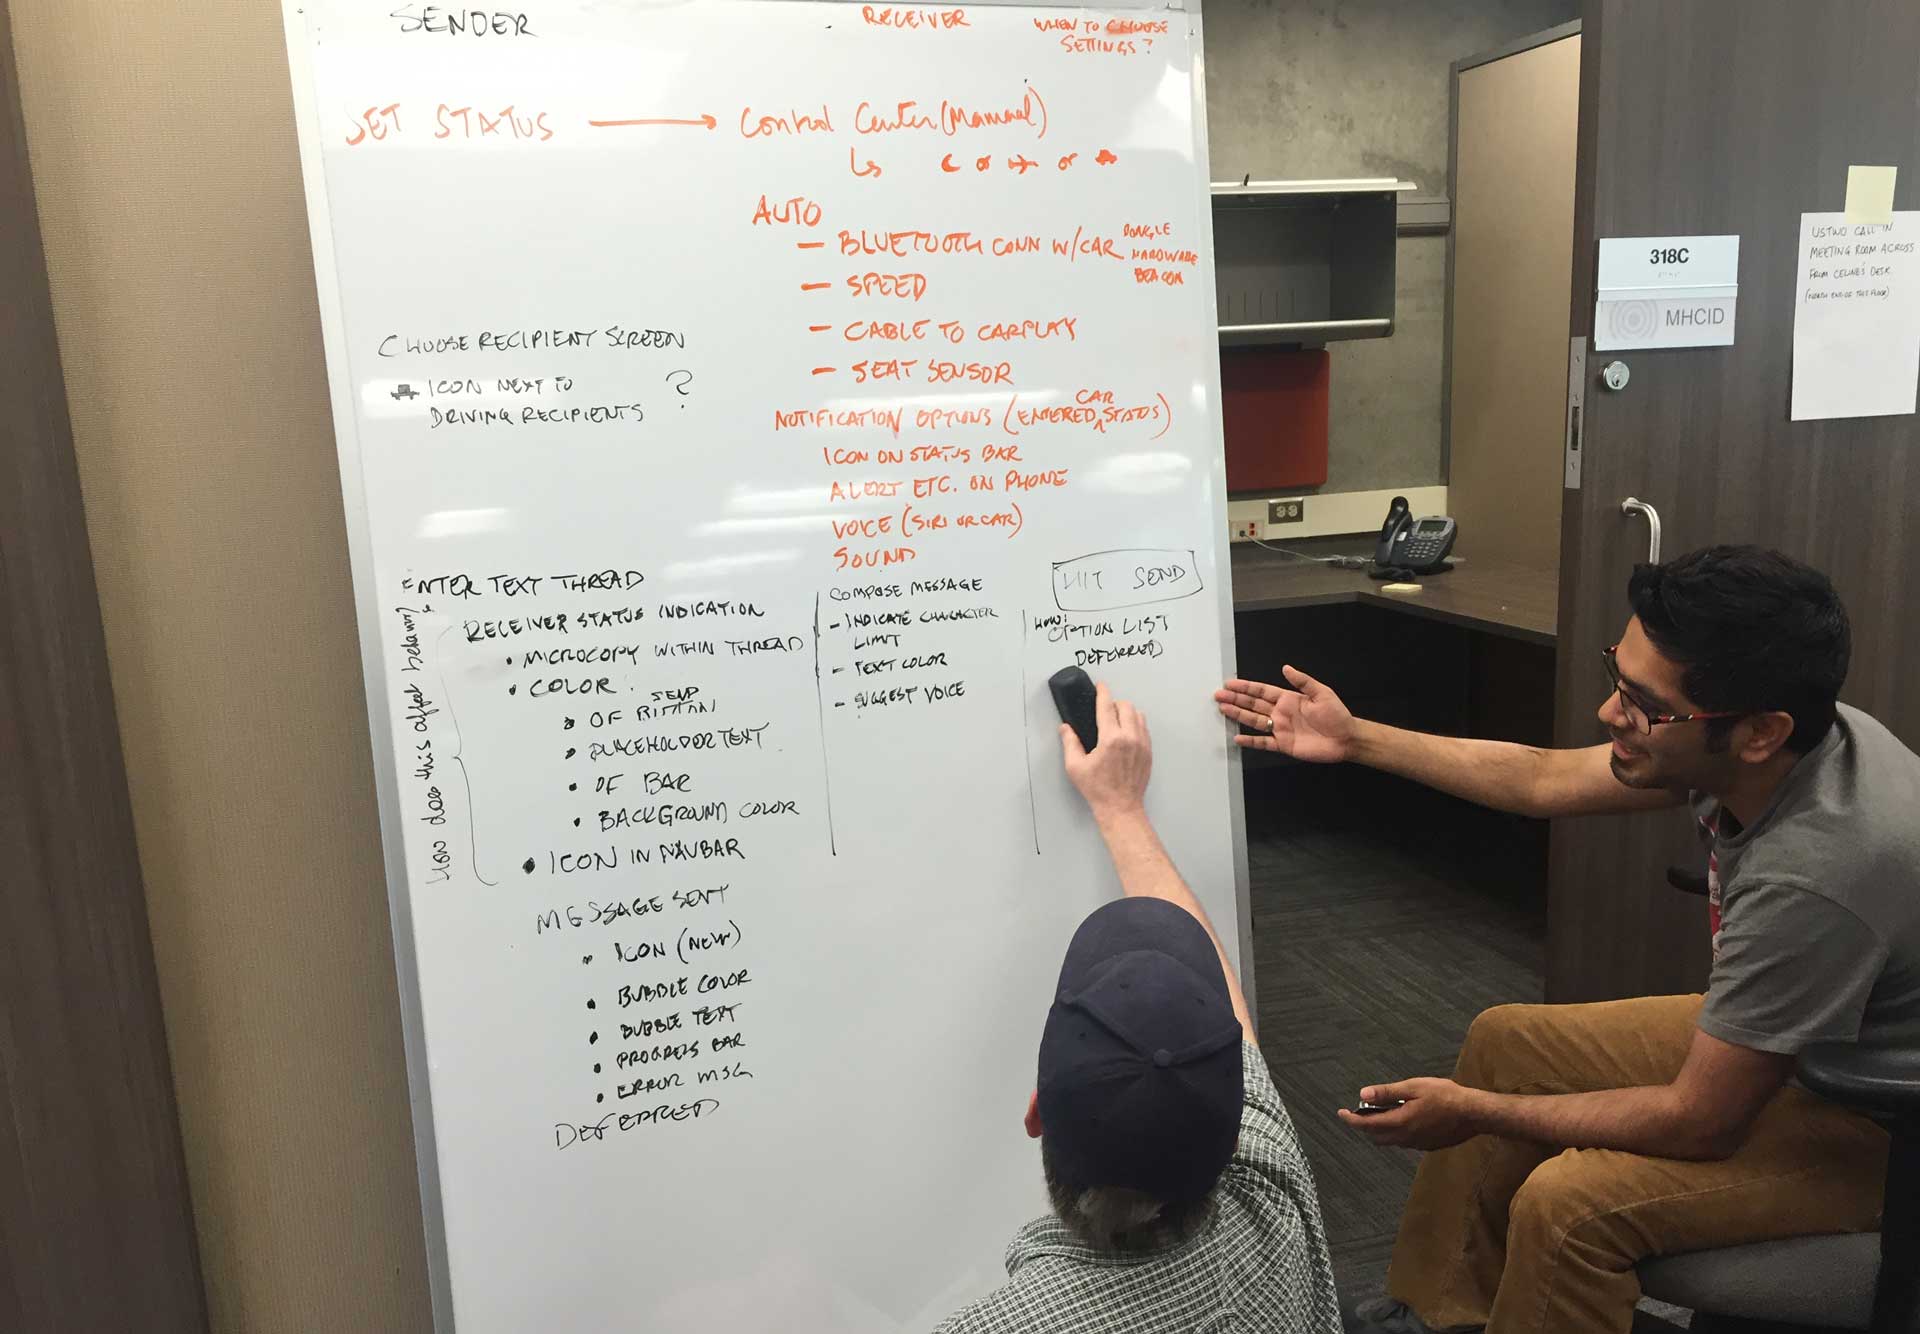 SENDER
RECEIVER
WHEN TO CHOOSE
SETTINGS?
SET STATUS → Control Center (Manual)
or or
AUTO
— BLUETOOTH CONN W/CAR
DONGLE
HARDWARE
BEACON
— SPEED
— CABLE TO CARPLAY
— SEAT SENSOR
NOTIFICATION OPTIONS (ENTERED CAR STATUS)
ICON ON STATUS BAR
ALERT ETC. ON PHONE
VOICE (SIRI OR CAR)
SOUND
CHOOSE RECIPIENT SCREEN
ICON NEXT TO
DRIVING RECIPIENTS ?
ENTER TEXT THREAD
How does this affect behavior?
RECEIVER STATUS INDICATION
• MICROCOPY WITHIN THREAD
• COLOR
• OF SEND BUTTON
• PLACEHOLDER TEXT
• OF BAR
• BACKGROUND COLOR
• ICON IN NAVBAR
MESSAGE SENT
• ICON (NEW)
• BUBBLE COLOR
• BUBBLE TEXT
• PROGRESS BAR
• ERROR MSG
DEFERRED
COMPOSE MESSAGE
- INDICATE CHARACTER
LIMIT
- TEXT COLOR
- SUGGEST VOICE
HIT SEND
HOW?
OPTION LIST
DEFERRED
318C
MHCID
USTWO CALL IN
MEETING ROOM ACROSS
FROM CELINE'S DESK
(NORTH END OF THIS FLOOR)